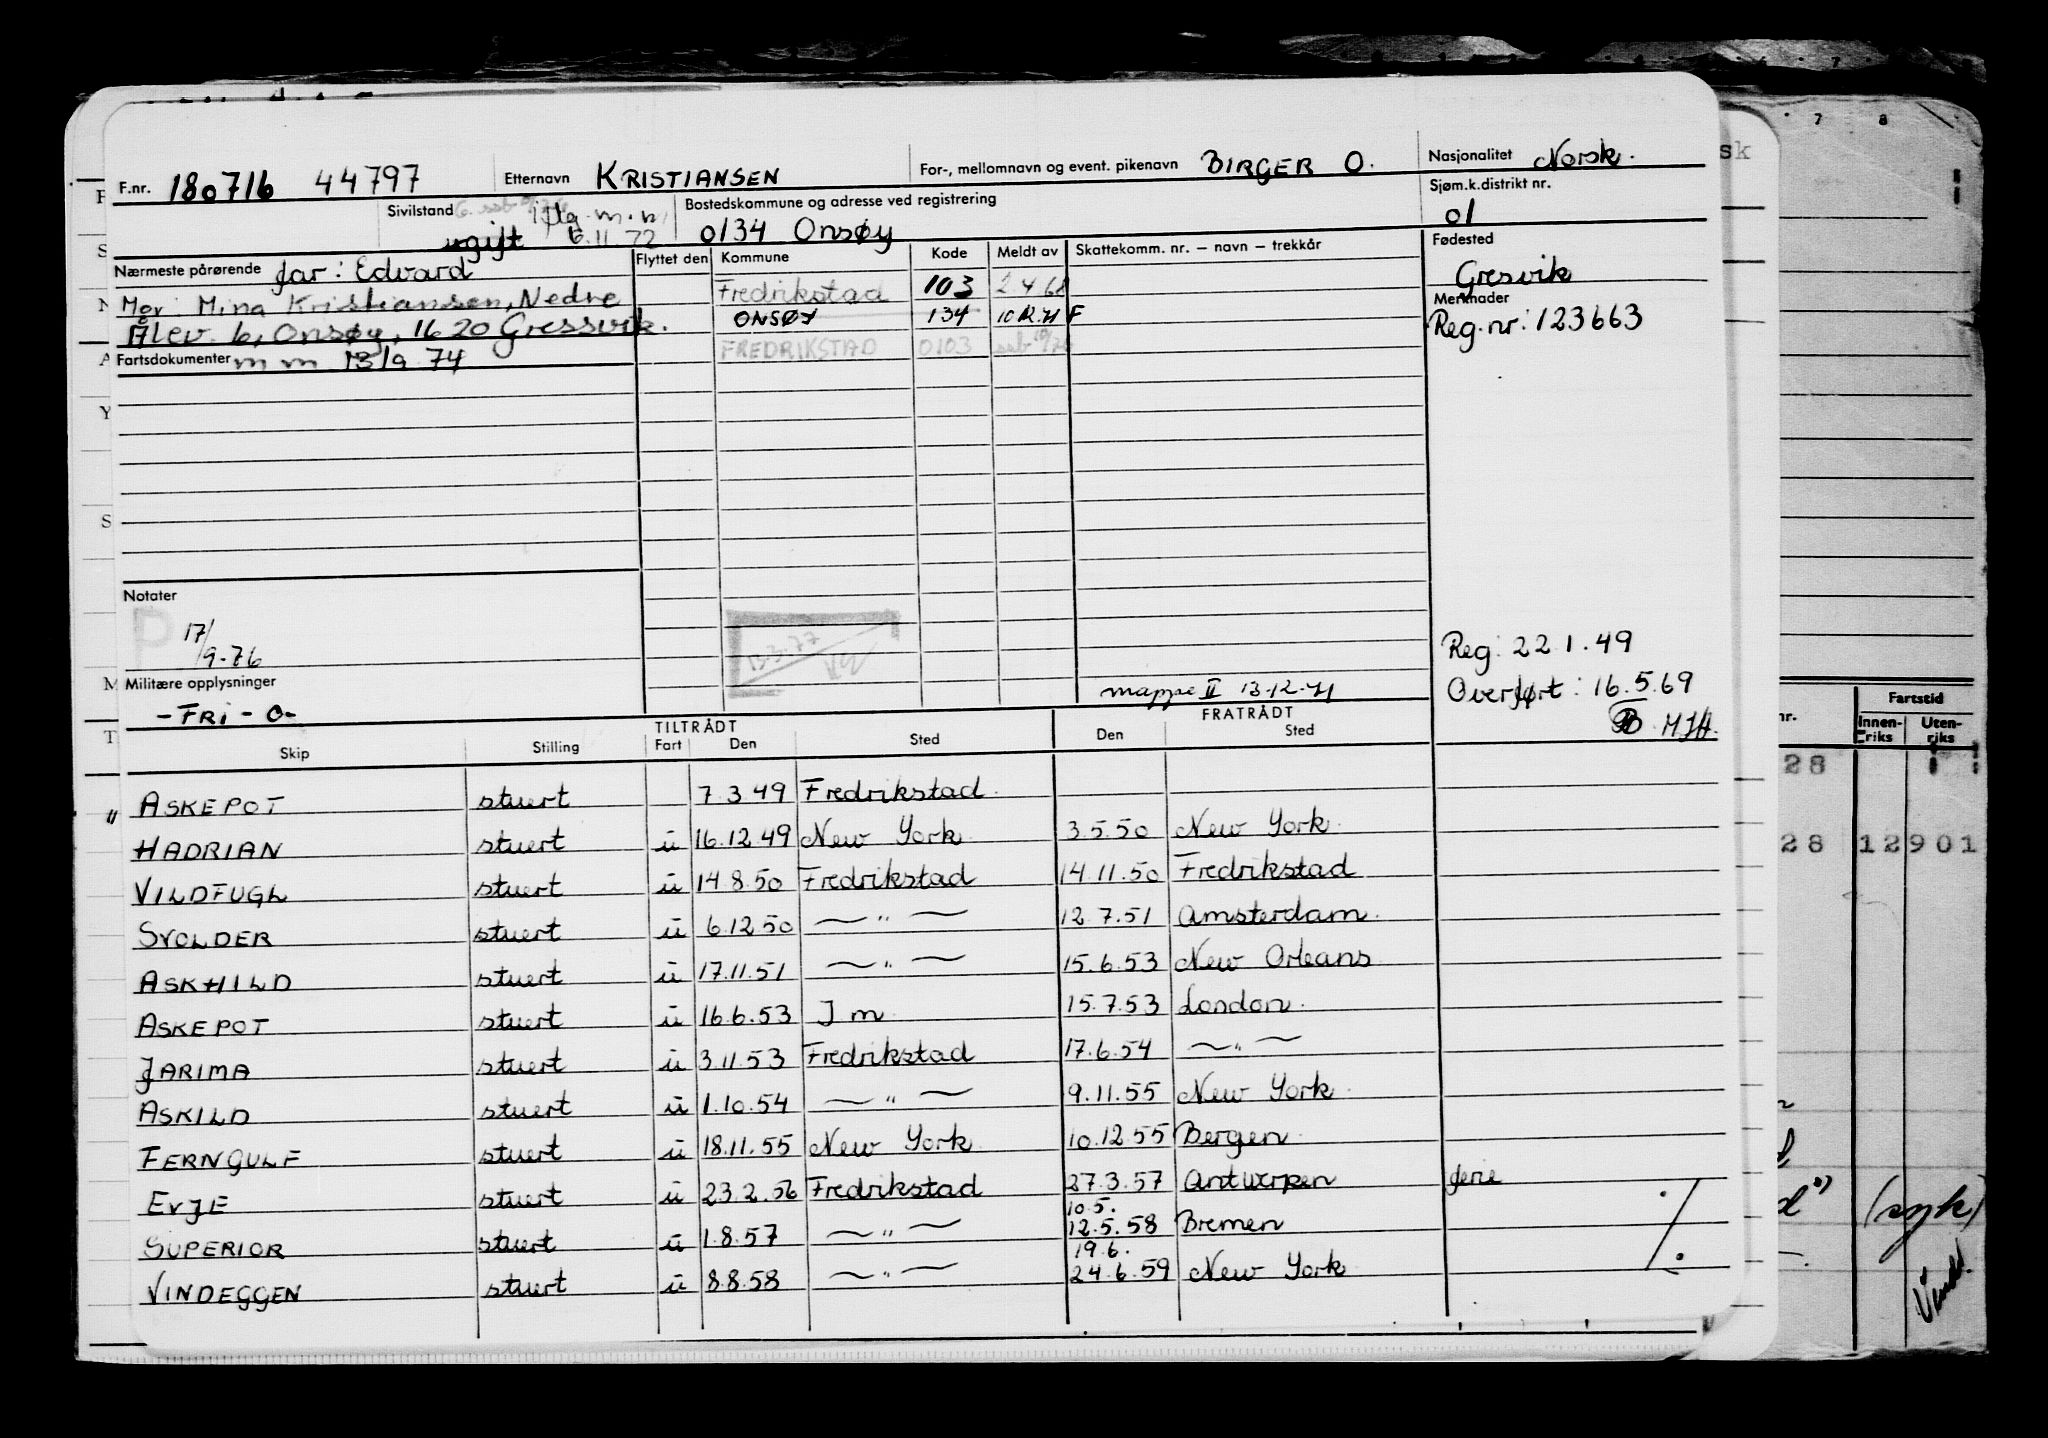 F.nr. 180716 44797 Etternavn KRISTIANSEN For-, mellomnavn og event. pikenavn BIRGER O. Nasjonalitet Norsk.
Sivilstand ugift 6.11.72 Bostedskommune og adresse ved registrering 0134 Onsøy Sjøm.k.distrikt nr. 01
Nærmeste pårørende far: Edvard Flyttet den Kommune Kode Meldt av Skattekomm. nr. – navn – trekkår Fødested Gresvik
Mor: Mina Kristiansen, Nedre Fredrikstad 103 2.4.68
Ålev. 6, Onsøy, 1620 Gressvik. ONSØY 134 10.12.71 F Merknader Reg.nr: 123663
Fartsdokumenter m m 13/9 74 FREDRIKSTAD 0103
Notater
17/9-76
13-3-77
Reg: 22.1.49
Militære opplysninger
-FRI-O-
mappe II 13-12-71
Overført: 16.5.69
MJH.
TILTRÅDT FRATRÅDT
Skip Stilling Fart Den Sted Den Sted
ASKEPOT stuert 7.3.49 Fredrikstad
HADRIAN stuert u 16.12.49 New York 3.5.50 New York
VILDFUGL stuert u 14.8.50 Fredrikstad 14.11.50 Fredrikstad
SVOLDER stuert u 6.12.50 — " — 12.7.51 Amsterdam
ASKHILD stuert u 17.11.51 — " — 15.6.53 New Orleans
ASKEPOT stuert u 16.6.53 J m 15.7.53 London
JARIMA stuert u 3.11.53 Fredrikstad 17.6.54 — " —
ASKILD stuert u 1.10.54 — " — 9.11.55 New York
FERNGULF stuert u 18.11.55 New York 10.12.55 Bergen
EVJE stuert u 23.2.56 Fredrikstad 27.3.57 Antwerpen ferie
10.5.
SUPERIOR stuert u 1.8.57 — " — 12.5.58 Bremen
19.6.
VINDEGGEN stuert u 8.8.58 — " — 24.6.59 New York
7 8
sk
nr. Fartstid
Innen-riks Uten-riks
28
28 12901
(syk)